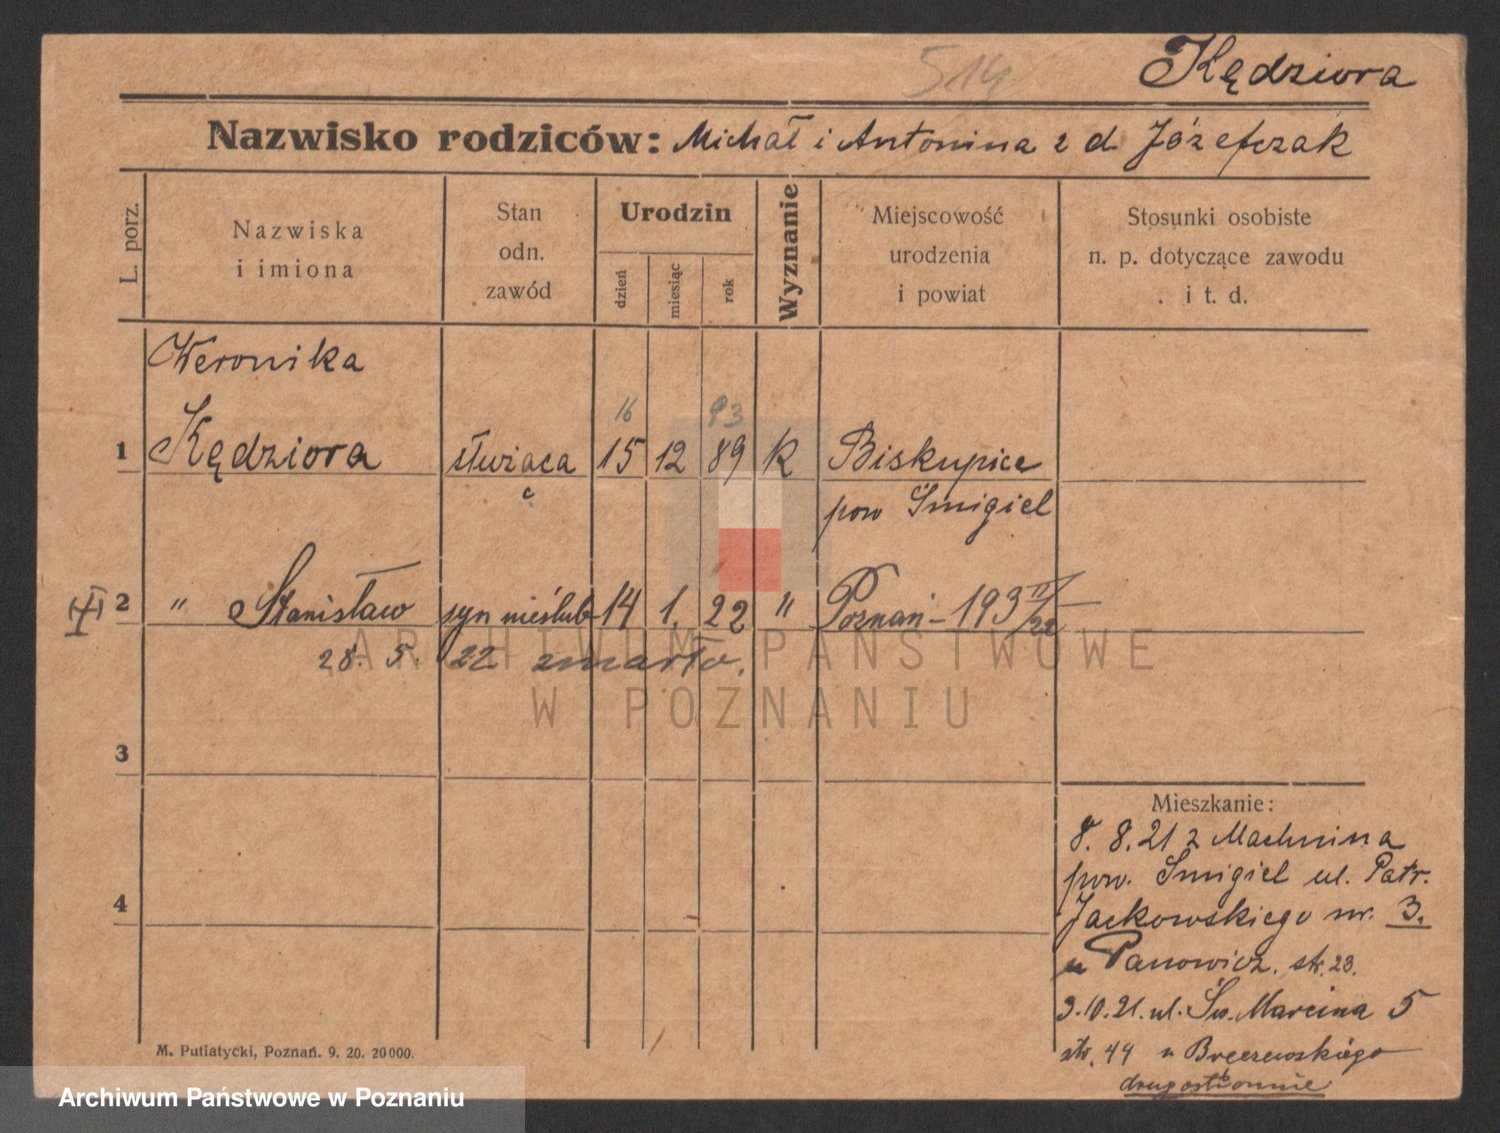 514
Kędziora
Nazwisko rodziców: Michał i Antonina z d. Józefczak
L. porz.
Nazwiska
i imiona
Stan
odn.
zawód
Urodzin
dzień
miesiąc
rok
Wyznanie
Miejscowość
urodzenia
i powiat
Stosunki osobiste
n. p. dotyczące zawodu
i t. d.
Weronika
16 93
1 Kędziora służąca 15 12 89 k Biskupice
c pow Śmigiel
2 " Stanisław syn nieślub 14 1. 22 " Poznań - 193 II/22
28. 5. 22 zmarło.
3
4
Mieszkanie:
8. 8. 21 z Machnina
pow. Śmigiel ul. Patr.
Jackowskiego nr. 3.
u Panowicz. str. 23.
3.10.21. ul. Św. Marcina 5
str. 44 u
drugostronnie
M. Putiatycki, Poznań. 9. 20. 20000.
ARCHIWUM PAŃSTWOWE
W POZNANIU
Archiwum Państwowe w Poznaniu